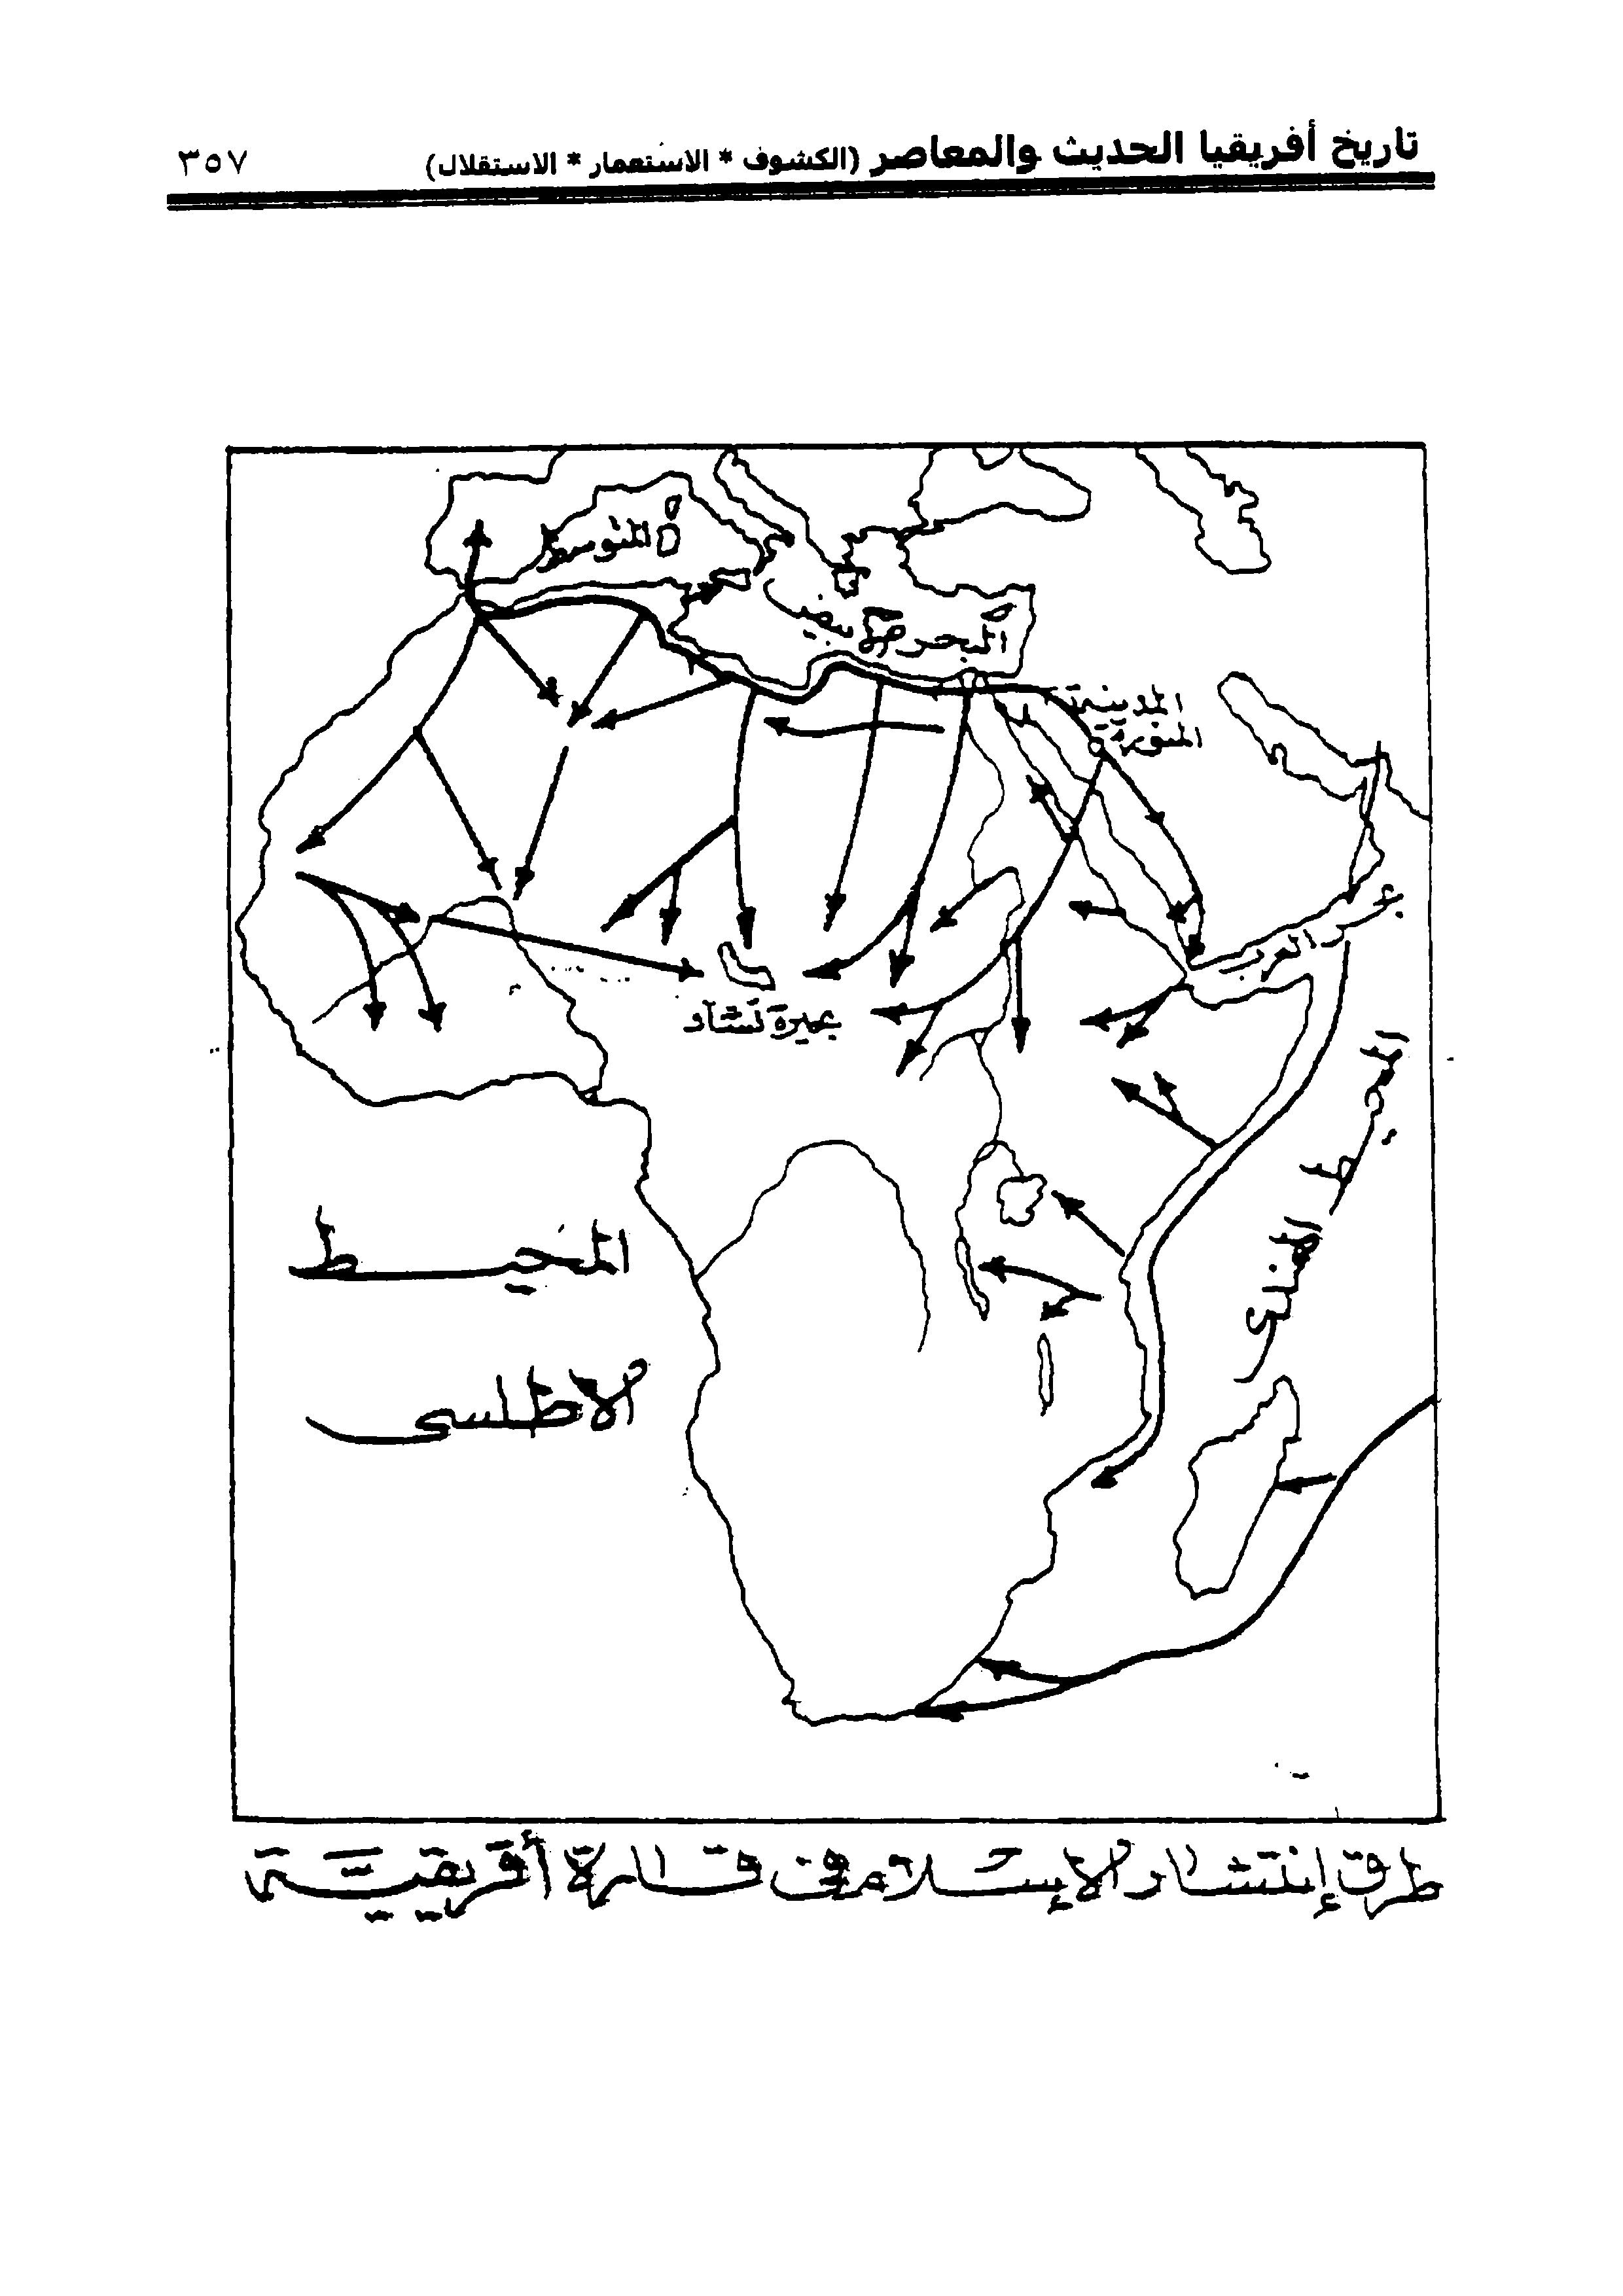 تاريخ أفريقيا الحديث والمعاصر (الكشوف * الاستعمار * الاستقلال) ٣٥٧
البحر الأبيض
المتوسط
المدينة
المنورة
بحر العرب
بحيرة تشاد
المحيط الهندى
المحيط
الأطلسى
طرق إنتشار الإسلام فى قارة أفريقية